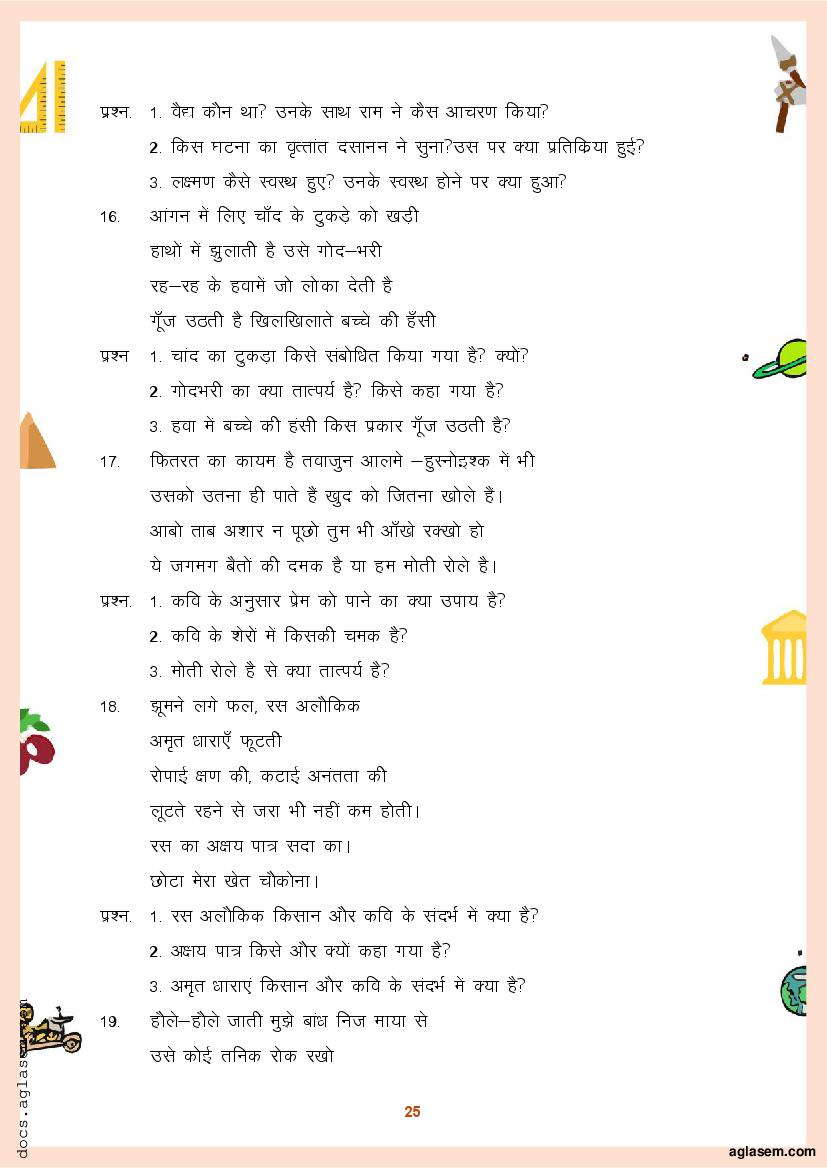 प्रश्न. 1. वैद्य कौन था? उनके साथ राम ने कैस आचरण किया?
2. किस घटना का वृत्तांत दसानन ने सुना?उस पर क्या प्रतिकिया हुई?
3. लक्ष्मण कैसे स्वस्थ हुए? उनके स्वस्थ होने पर क्या हुआ?
16. आंगन में लिए चाँद के टुकड़े को खड़ी
हाथों में झुलाती है उसे गोद–भरी
रह–रह के हवामें जो लोका देती है
गूँज उठती है खिलखिलाते बच्चे की हँसी
प्रश्न 1. चांद का टुकड़ा किसे संबोधित किया गया है? क्यों?
2. गोदभरी का क्या तात्पर्य है? किसे कहा गया है?
3. हवा में बच्चे की हंसी किस प्रकार गूँज उठती है?
17. फितरत का कायम है तवाजुन आलमे –हुस्नोइश्क में भी
उसको उतना ही पाते हैं खुद को जितना खोले हैं।
आबो ताब अशार न पूछो तुम भी आँखे रक्खो हो
ये जगमग बैतों की दमक है या हम मोती रोले है।
प्रश्न. 1. कवि के अनुसार प्रेम को पाने का क्या उपाय है?
2. कवि के शेरों में किसकी चमक है?
3. मोती रोले है से क्या तात्पर्य है?
18. झूमने लगे फल, रस अलौकिक
अमृत धाराएँ फूटती
रोपाई क्षण की, कटाई अनंतता की
लूटते रहने से जरा भी नहीं कम होती।
रस का अक्षय पात्र सदा का।
छोटा मेरा खेत चौकोना।
प्रश्न. 1. रस अलौकिक किसान और कवि के संदर्भ में क्या है?
2. अक्षय पात्र किसे और क्यों कहा गया है?
3. अमृत धाराएं किसान और कवि के संदर्भ में क्या है?
19. हौले–हौले जाती मुझे बांध निज माया से
उसे कोई तनिक रोक रखो
25
docs.aglasem
aglasem.com